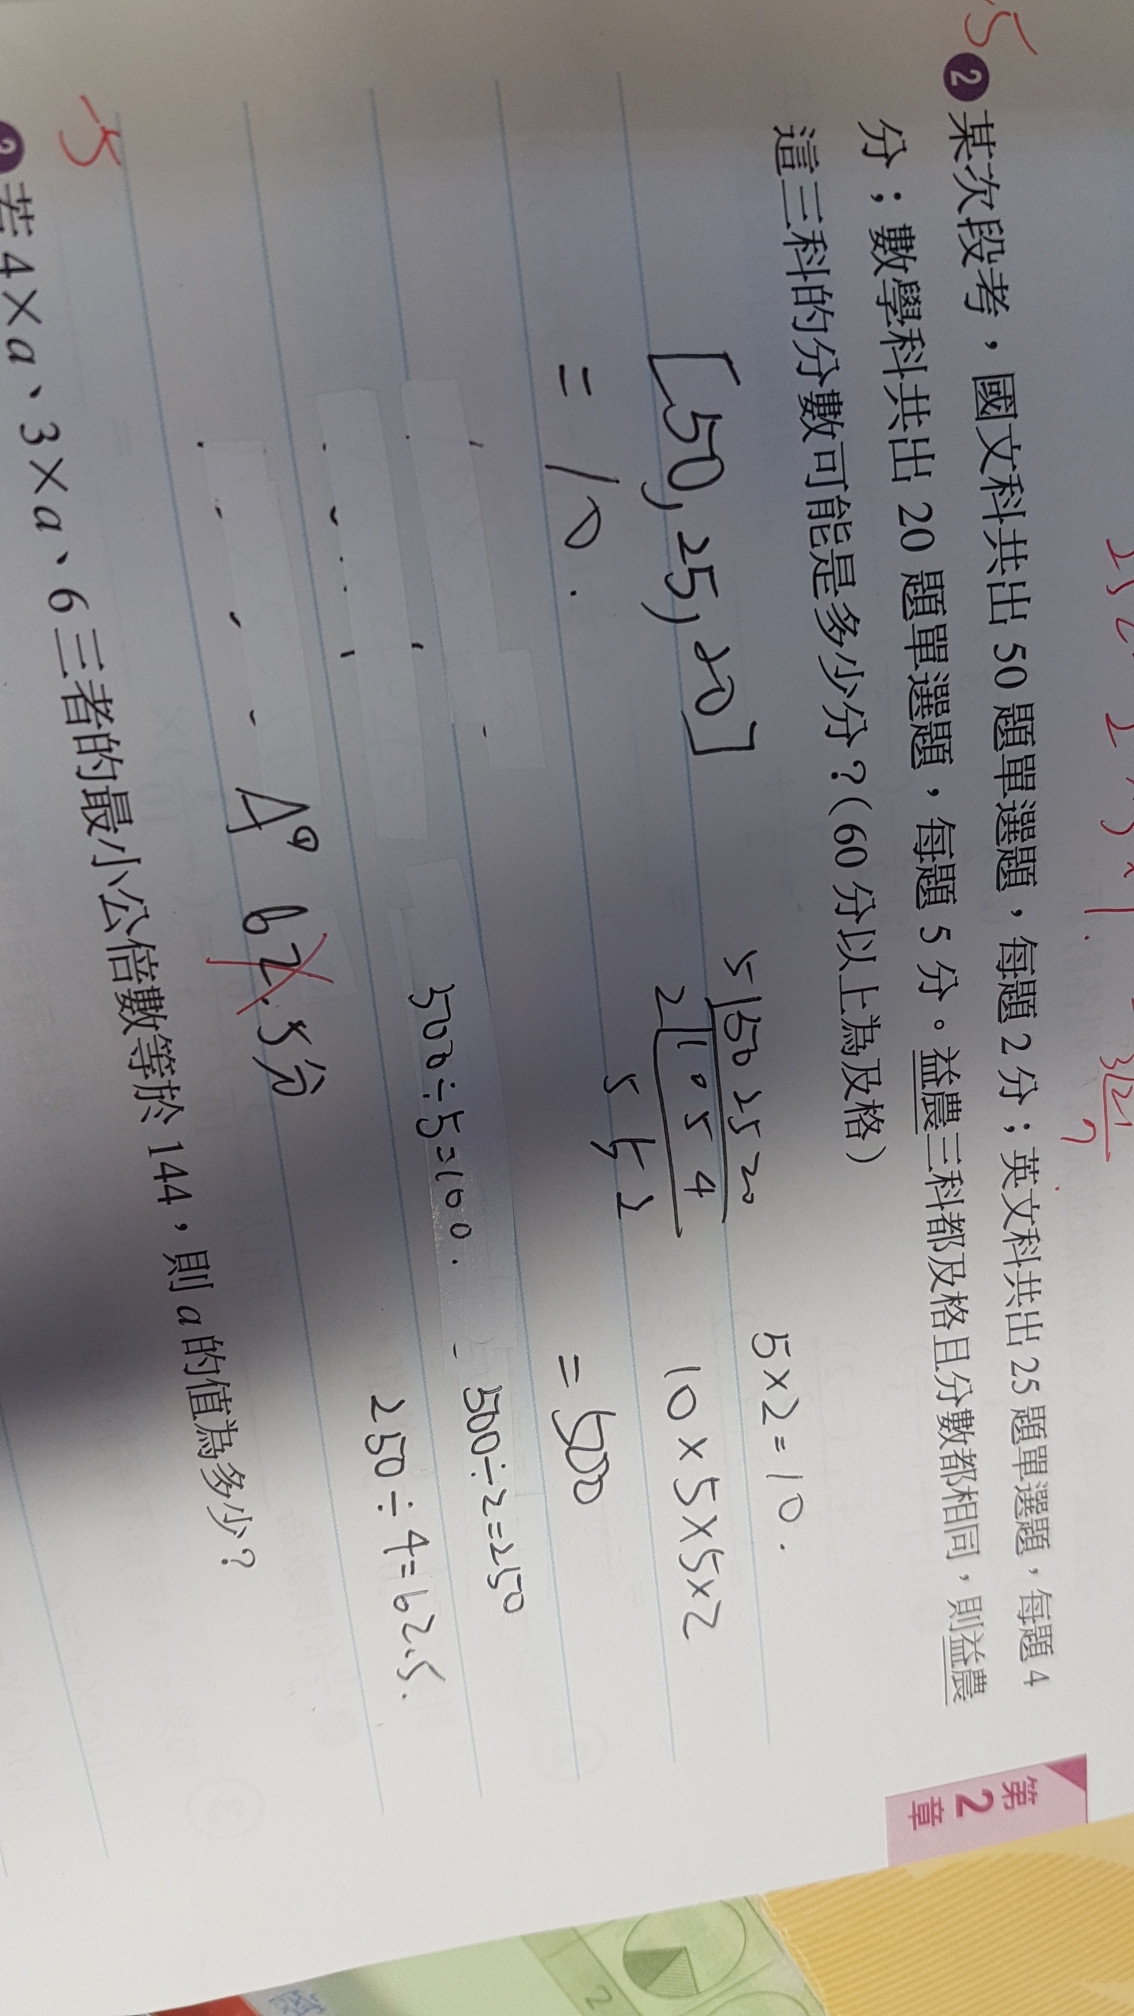 -5
❷ 某次段考，國文科共出 50 題單選題，每題 2 分；英文科共出 25 題單選題，每題 4
分；數學科共出 20 題單選題，每題 5 分。益農三科都及格且分數都相同，則益農
這三科的分數可能是多少分？（60 分以上為及格）
[50, 25, 20]
= 10.
5|50 25 20
2|10 5 4
5 5 2
5×2=10.
10×5×5×2
=500
500÷5=100.
500÷2=250
250÷4=62.5.
A: 62.5分
-5
若 4×a、3×a、6 三者的最小公倍數等於 144，則 a 的值為多少？
第
2
章
3|21
7
2